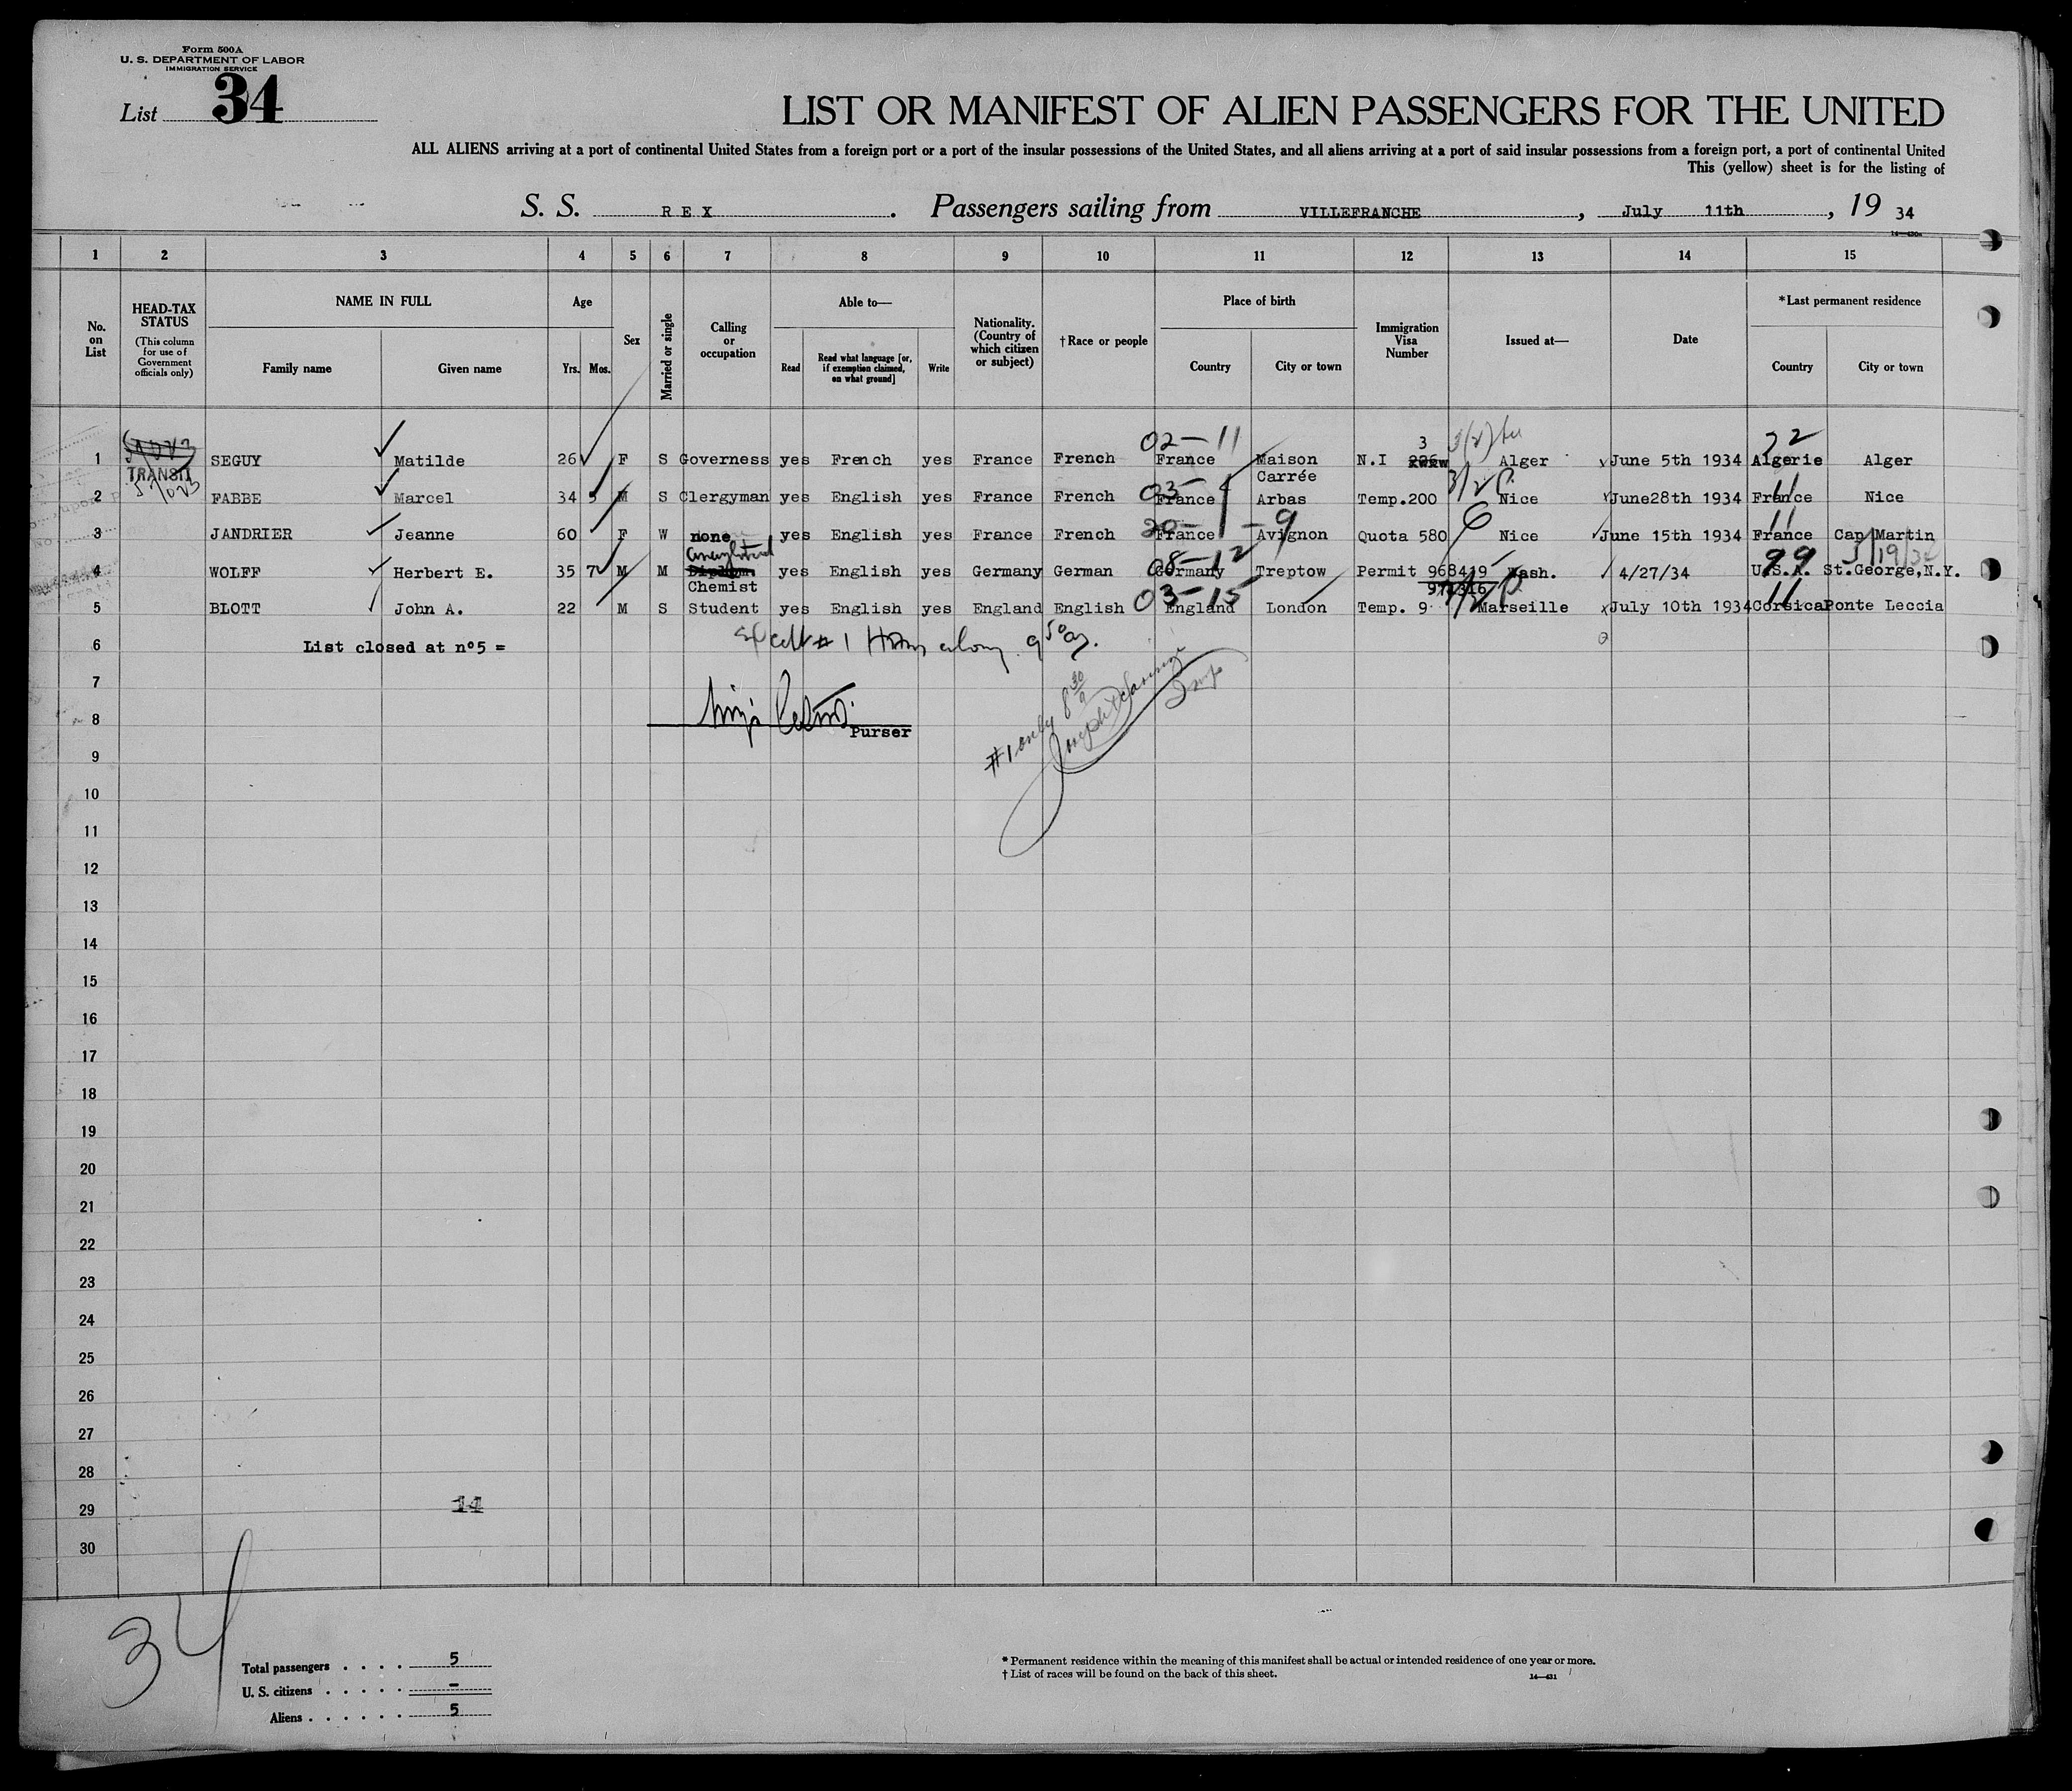 Form 500 A
U. S. DEPARTMENT OF LABOR
IMMIGRATION SERVICE
List 34
LIST OR MANIFEST OF ALIEN PASSENGERS FOR THE UNITED
ALL ALIENS arriving at a port of continental United States from a foreign port or a port of the insular possessions of the United States, and all aliens arriving at a port of said insular possessions from a foreign port, a port of continental United
This (yellow) sheet is for the listing of
S. S. REX . Passengers sailing from VILLEFRANCHE , July 11th , 19 34
1 2 3 4 5 6 7 8 9 10 11 12 13 14 15
No. on List
HEAD-TAX STATUS (This column for use of Government officials only)
NAME IN FULL Family name Given name
Age Yrs. Mos.
Sex
Married or single
Calling or occupation
Able to— Read Read what language [or, if exemption claimed, on what ground] Write
Nationality. (Country of which citizen or subject)
†Race or people
Place of birth Country City or town
Immigration Visa Number
Issued at—
Date
*Last permanent residence Country City or town
02-11 3 22
1 SEGUY Matilde 26 F S Governess yes French yes France French France Maison Carrée N.I Alger June 5th 1934 Algerie Alger
TRANSIT
2 FABBE Marcel 34 5 M S Clergyman yes English yes France French 03- France Arbas Temp.200 Nice June28th 1934 France 11 Nice
3 JANDRIER Jeanne 60 F W none yes English yes France French 20- France Avignon 9 Quota 580 6 Nice June 15th 1934 France 11 Cap Martin
4 WOLFF Herbert E. 35 7 M M Chemist yes English yes Germany German 08-12 Germany Treptow Permit 968419 Wash. 4/27/34 U.S.A. 99 St.George,N.Y.
5 BLOTT John A. 22 M S Student yes English yes England English 03-15 England London Temp. 9 Marseille July 10th 1934 Corsica 11 Ponte Leccia
6 List closed at nº5 =
7
8 Purser
#1 only 8 30
9
10
11
12
13
14
15
16
17
18
19
20
21
22
23
24
25
26
27
28
29 14
30
34
Total passengers . . . . 5
U. S. citizens . . . . . –
Aliens . . . . . . 5
* Permanent residence within the meaning of this manifest shall be actual or intended residence of one year or more.
† List of races will be found on the back of this sheet.
14—431